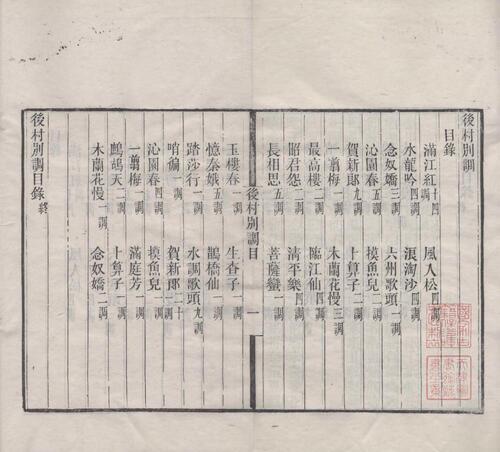 後村別調
目錄
滿江紅 十四調 風入松 四調
水龍吟 四調 浪淘沙 五調
念奴嬌 三調 六州歌頭 一調
沁園春 五調 摸魚兒 二調
賀新郎 九調 卜算子 二調
一翦梅 一調 木蘭花慢 三調
最高樓 二調 臨江仙 四調
昭君怨 二調 清平樂 四調
長相思 五調 菩薩蠻 一調
後村別調目 一
玉樓春 一調 生查子 一調
憶秦娥 五調 鵲橋仙 一調
踏莎行 一調 水調歌頭 九調
哨徧 一調 賀新郎 二十調
沁園春 四調 摸魚兒 一調
一翦梅 一調 滿庭芳 一調
鷓鴣天 二調 卜算子 一調
木蘭花慢 一調 念奴嬌 二調
後村別調目錄 終